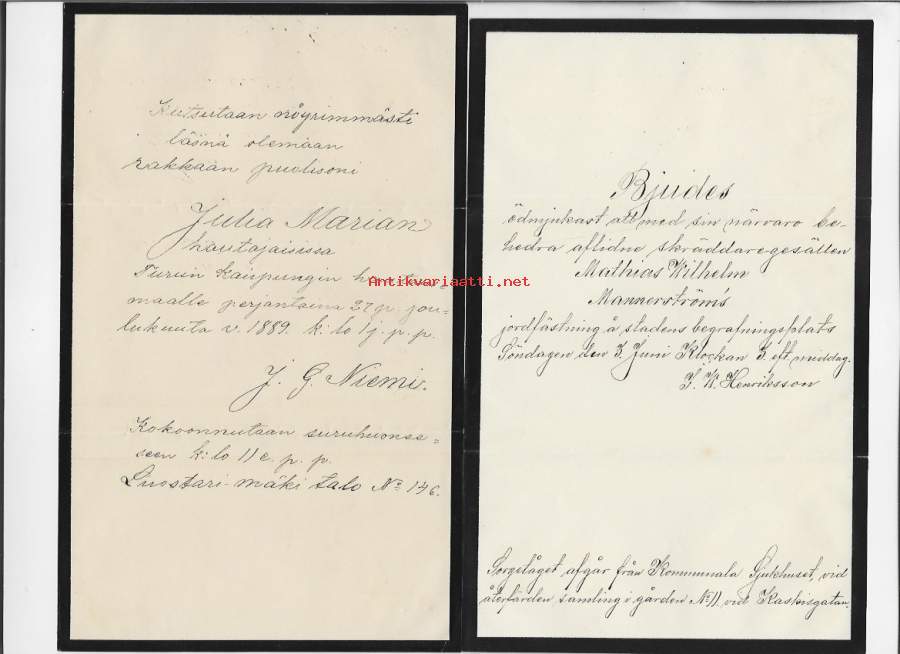 Kutsutaan nöyrimmästi
läsnä olemaan
rakkaan puolisoni
Julia Marian
hautajaisissa
Turun kaupungin hautus-
maalle perjantaina 27 p. jou-
lukuuta v. 1889. k:lo 1 j. p. p.
J. G. Niemi.
Kokoonnutaan suruhuonee-
seen k:lo 11 e. p. p.
Luostari-mäki talo No 146.
Antikvariaatti.net
Bjudes
ödmjukast att med sin närvaro be-
hedra aflidne skräddaregesällen
Mathias Wilhelm
Mannerström's
jordfästning å stadens begrafningsplats
Söndagen den 3. Juni Klockan 3. eft. middag.
Henriksson
Sorgetåget afgår från Kommunala Sjukhuset, vid
återfärden samling i gården No 11. vid Kaskisgatan.
Antikvariaatti.net